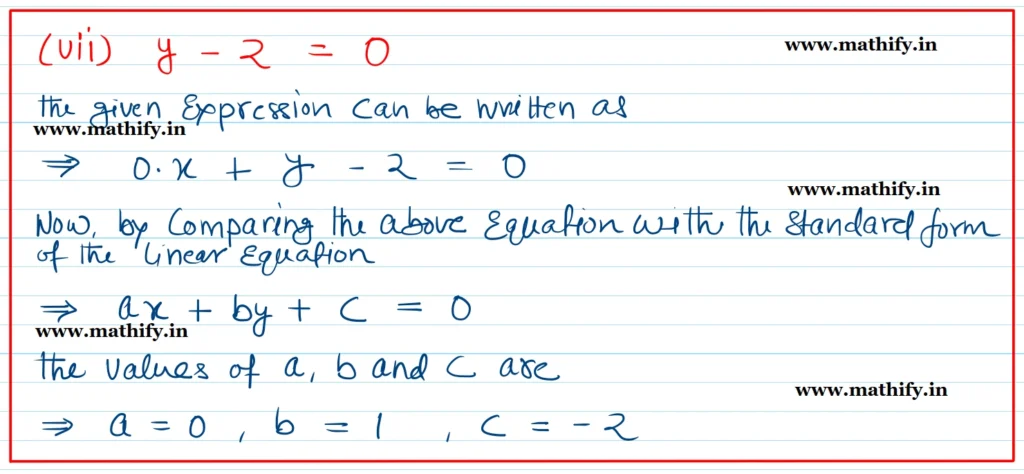 (vii) y - 2 = 0
www.mathify.in
the given Expression can be written as
www.mathify.in
⇒ 0·x + y - 2 = 0
www.mathify.in
Now, by Comparing the above Equation with the standard form
of the linear Equation
⇒ ax + by + c = 0
www.mathify.in
the values of a, b and c are
www.mathify.in
⇒ a = 0, b = 1, c = -2